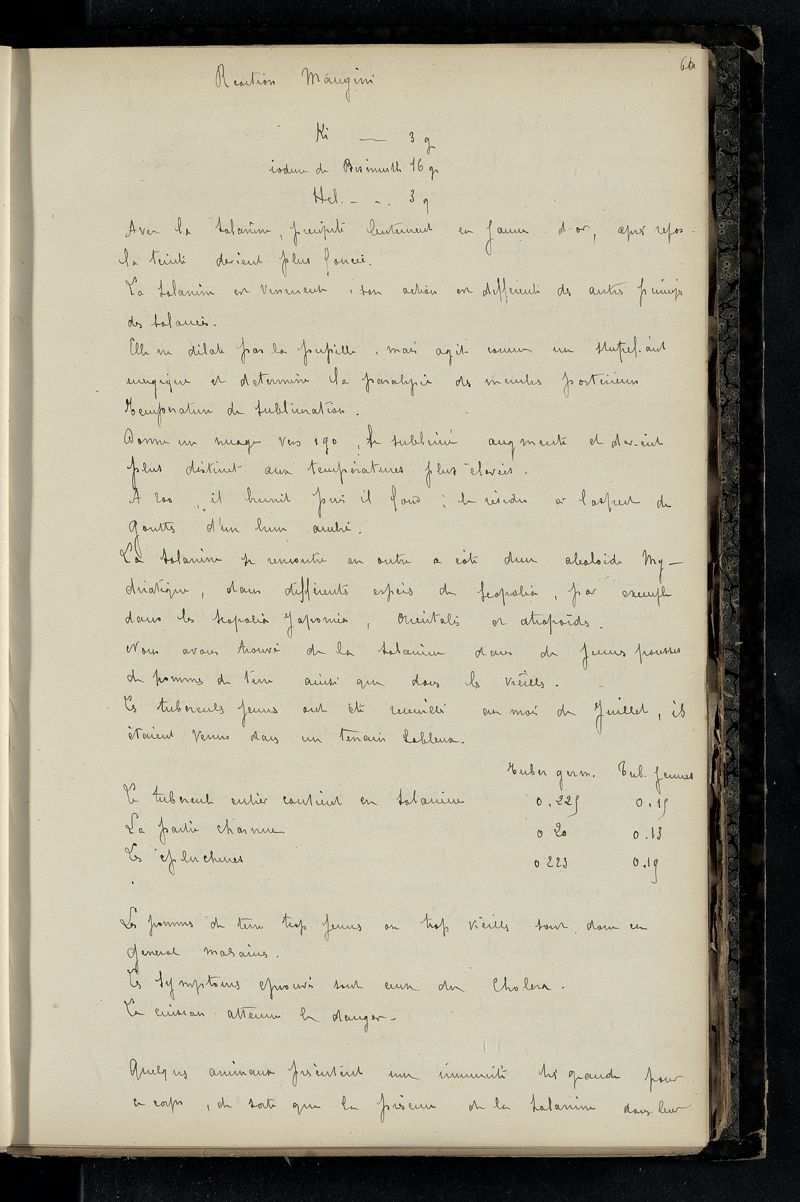 66
Reaction Mangini
Ki — 3 g
iodure de Bismuth 16 g
Hcl. - -. 3 g
Avec la solanine, precipité lentement en jaune d'or, après repos
la teinte devient plus foncée.
La solanine est veneneuse, son action est differente des autres princip
des solanées.
Elle ne dilate pas la pupille, mais agit comme un stupefiant
energique et determine la paralysie des membres posterieurs
Temperature de sublimation.
Donne un nuage vers 190, le sublimé augmente et devient
plus distinct aux temperatures plus elevées.
A 200, il brunit puis il fond; le residu a l'aspect de
gouttes d'un brun ambré.
La solanine se rencontre en outre a coté d'un alcaloide My-
driatique, dans differents especes de scopolia, par exemple
dans les scopolia Japonica, Orientalis et atropoïdes.
Nous avons trouvé de la solanine dans de jeunes pousses
de pommes de terre ainsi que dans les vieilles.
Les tubercules jeunes ont été recueillis au mois de Juillet, ils
étaient venus dans un terrain sableux.
Tuber germ. Tub. jeunes
Le tubercule entier contient en solanine 0.225 0.15
La partie charnue 0 20 0.13
Les épluchures 0 223 0.19
Les pommes de terre trop jeunes ou trop vieilles sont donc en
general malsaines.
Les symptomes eprouvés sont ceux du Cholera.
La cuisson attenue le danger-
Quelques animaux présentent une immunité très grande pour
ce corps, de sorte que la présence de la solanine dans leur